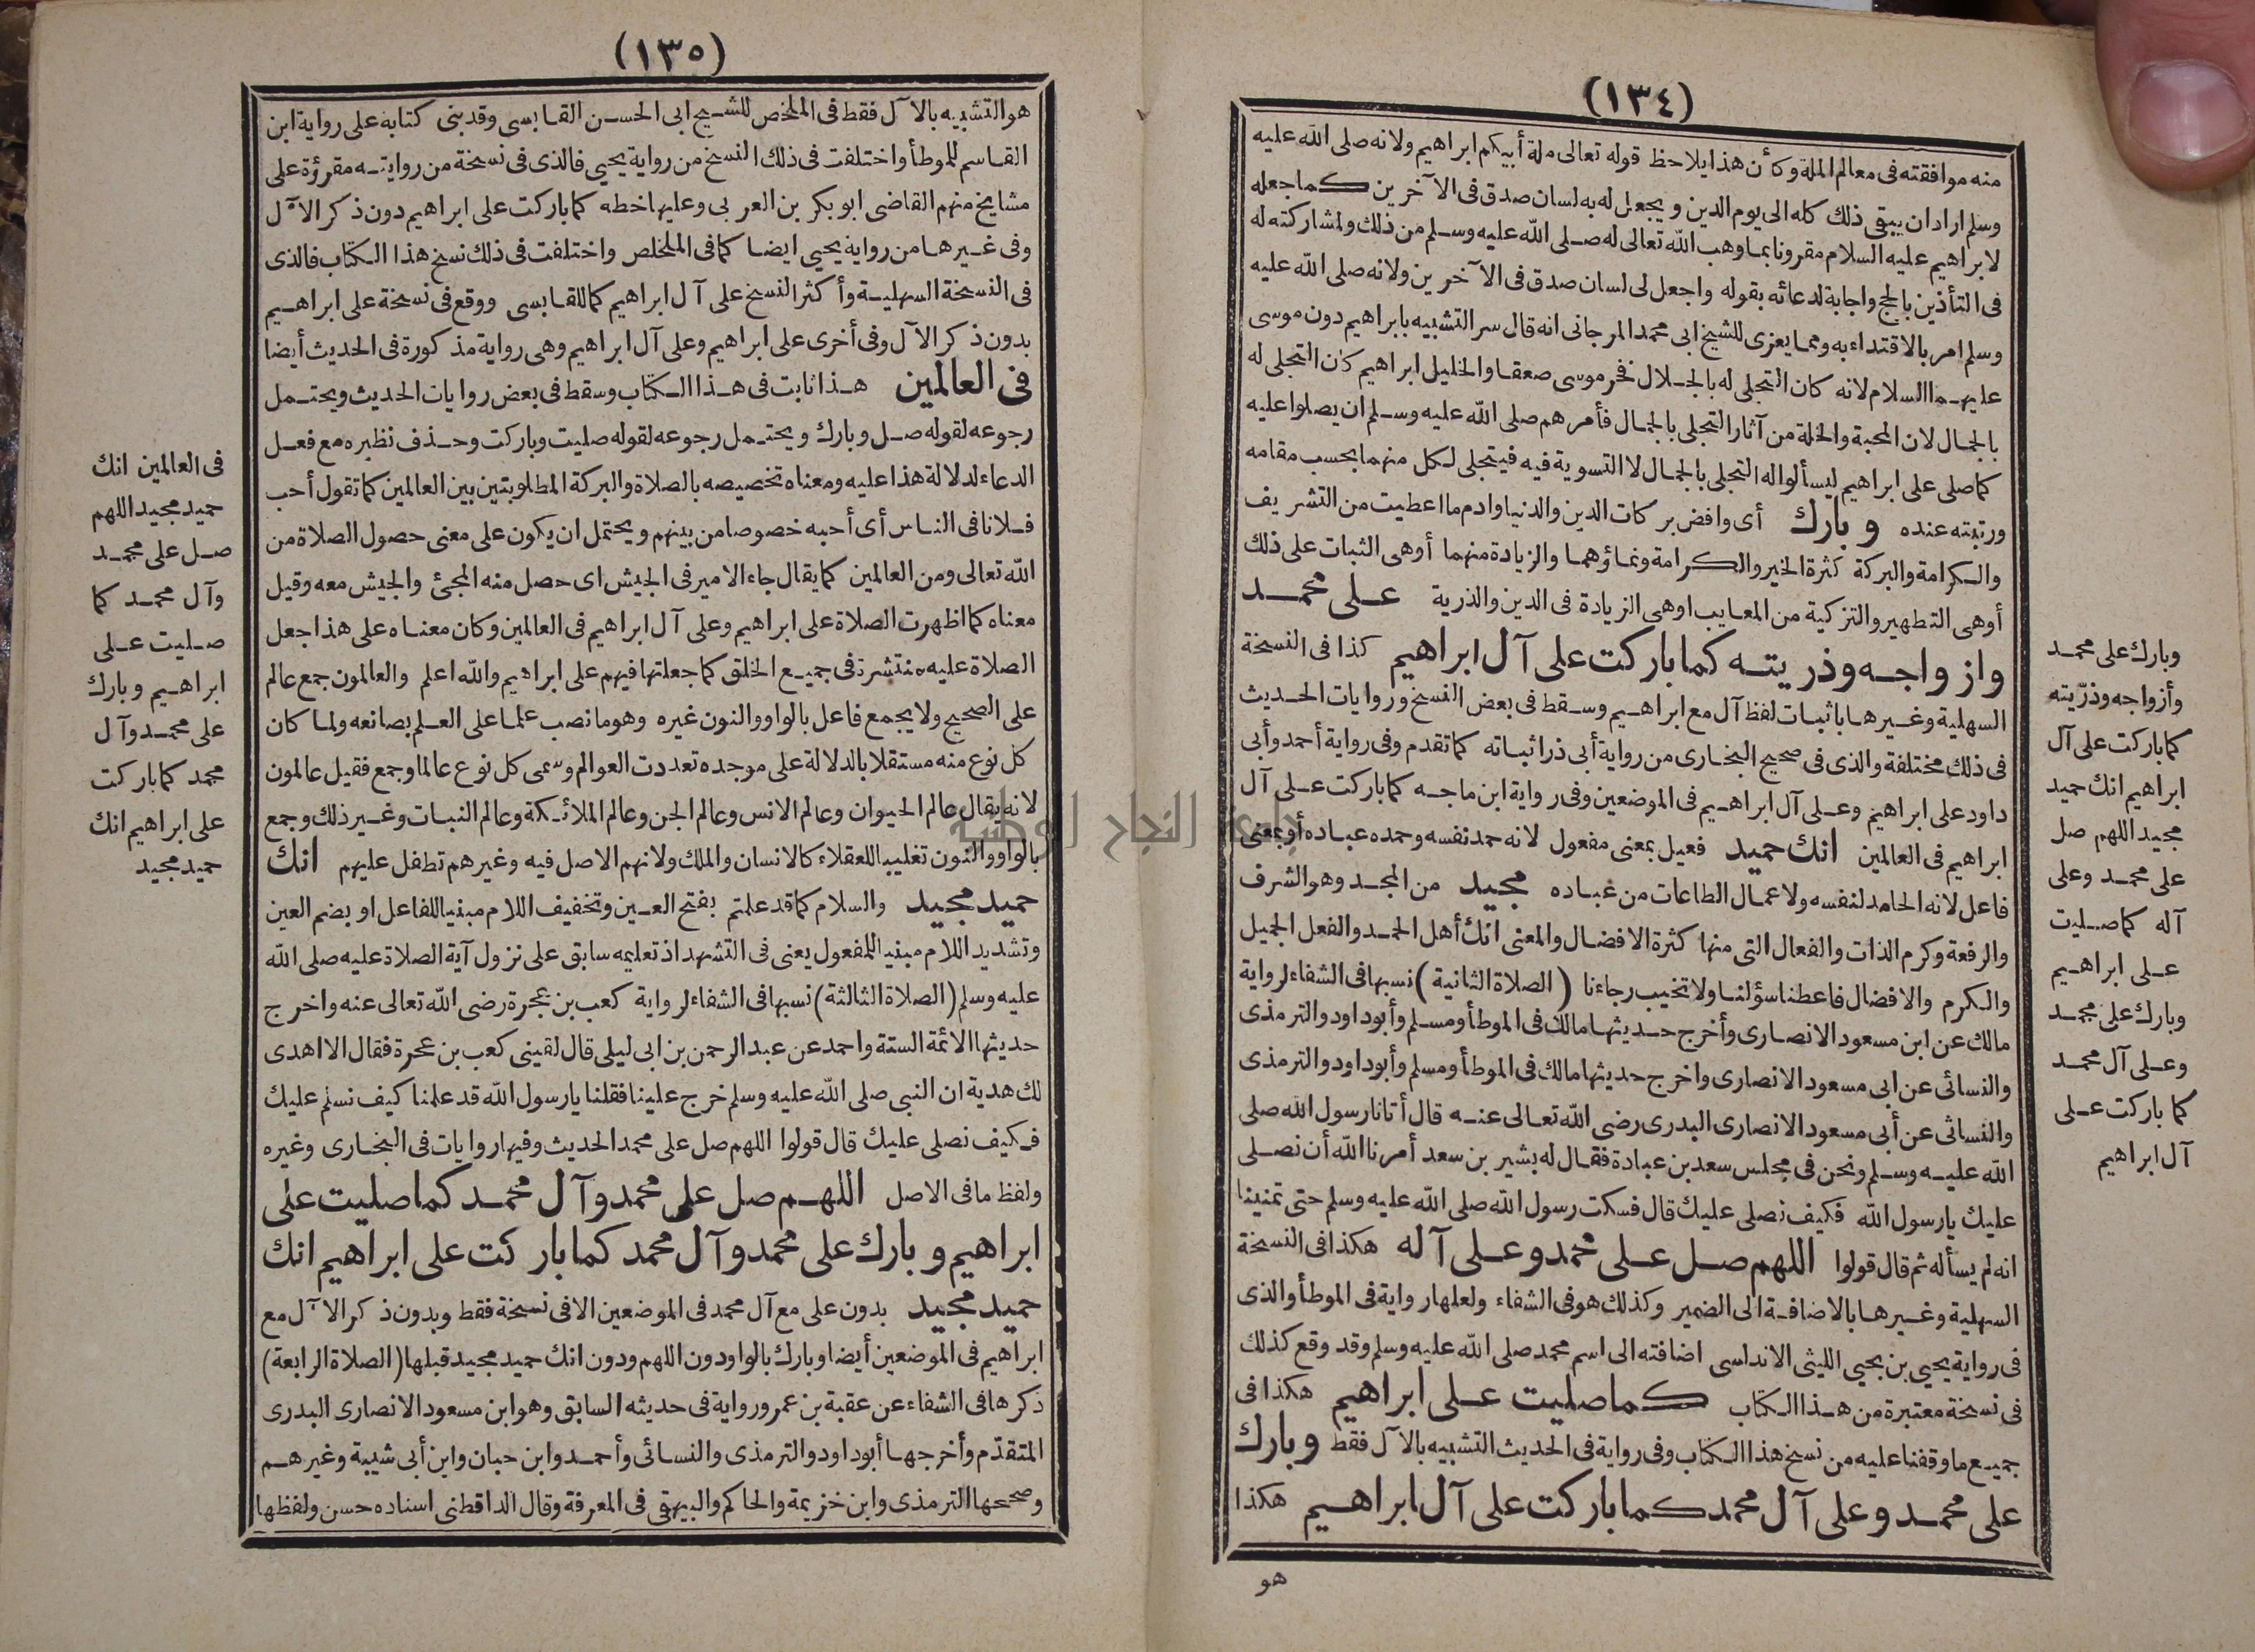 (١٣٤)
منه موافقته فى معالم الملة وكأن هذا يلاحظ قوله تعالى ملة أبيكم ابراهيم ولانه صلى الله عليه
وسلم اراد ان يبقى ذلك كله الى يوم الدين ويجعل له به لسان صدق فى الآخرين كما جعله
لابراهيم عليه السلام مقرونا بما وهب الله تعالى له صلى الله عليه وسلم من ذلك ولمشاركته له
فى التأذين بالحج واجابة لدعائه بقوله واجعل لى لسان صدق فى الآخرين ولانه صلى الله عليه
وسلم امر بالاقتداء به ومما يعزى للشيخ ابى محمد المرجانى انه قال سر التشبيه بابراهيم دون موسى
عليهما السلام لانه كان التجلى له بالجلال فخر موسى صعقا والخليل ابراهيم كان التجلى له
بالجمال لان المحبة والخلة من آثار التجلى بالجمال فأمرهم صلى الله عليه وسلم ان يصلوا عليه
كما صلى على ابراهيم ليسألوا له التجلى بالجمال لا التسوية فيه فيتجلى لكل منهما بحسب مقامه
ورتبته عنده وبارك أى وافض بركات الدين والدنيا وادم ما اعطيت من التشريف
والكرامة والبركة كثرة الخير والكرامة ونماؤهما والزيادة منهما أوهى الثبات على ذلك
أوهى التطهير والتزكية من المعايب اوهى الزيادة فى الدين والذرية على محمد
وازواجه وذريته كما باركت على آل ابراهيم كذا فى النسخة
السهلية وغيرها باثبات لفظ آل مع ابراهيم وسقط فى بعض النسخ وروايات الحديث
فى ذلك مختلفة والذى فى صحيح البخارى من رواية أبى ذر اثباته كما تقدم وفى رواية أحمد وأبى
داود على ابراهيم وعلى آل ابراهيم فى الموضعين وفى رواية ابن ماجه كما باركت على آل
ابراهيم فى العالمين انك حميد فعيل بمعنى مفعول لانه حمد نفسه وحمده عباده أو بمعنى
فاعل لانه الحامد لنفسه ولاعمال الطاعات من عباده مجيد من المجد وهو الشرف
والرفعة وكرم الذات والفعال التى منها كثرة الافضال والمعنى انك أهل الحمد والفعل الجميل
والكرم والافضال فاعطنا سؤلنا ولا تخيب رجاءنا (الصلاة الثانية) نسبها فى الشفاء لرواية
مالك عن ابن مسعود الانصارى وأخرج حديثها مالك فى الموطأ ومسلم وأبو داود والترمذى
والنسائى عن ابى مسعود الانصارى واخرج حديثها مالك فى الموطأ ومسلم وأبو داود والترمذى
والنسائى عن أبى مسعود الانصارى البدرى رضى الله تعالى عنه قال أتانا رسول الله صلى
الله عليه وسلم ونحن فى مجلس سعد بن عبادة فقال له بشير بن سعد أمرنا الله أن نصلى
عليك يا رسول الله فكيف نصلى عليك قال فسكت رسول الله صلى الله عليه وسلم حتى تمنينا
انه لم يسأله ثم قال قولوا اللهم صل على محمد وعلى آله هكذا فى النسخة
السهلية وغيرها بالاضافة الى الضمير وكذلك هو فى الشفاء ولعلها رواية فى الموطأ والذى
فى رواية يحيى بن يحيى الليثى الاندلسى اضافته الى اسم محمد صلى الله عليه وسلم وقد وقع كذلك
فى نسخة معتبرة من هذا الكتاب كما صليت على ابراهيم هكذا فى
جميع ما وقفنا عليه من نسخ هذا الكتاب وفى رواية فى الحديث التشبيه بالآل فقط وبارك
على محمد وعلى آل محمد كما باركت على آل ابراهيم هكذا
هو
وبارك على محمد
وأزواجه وذرّيته
كما باركت على آل
ابراهيم انك حميد
مجيد اللهم صل
على محمد وعلى
آله كما صليت
على ابراهيم
وبارك على محمد
وعلى آل محمد
كما باركت على
آل ابراهيم
(١٣٥)
هو التشبيه بالآل فقط فى الملخص للشيخ ابى الحسن القابسى وقد بنى كتابه على رواية ابن
القاسم للموطأ واختلفت فى ذلك النسخ من رواية يحيى فالذى فى نسخة من روايته مقرؤة على
مشايخ منهم القاضى ابو بكر بن العربى وعليها خطه كما باركت على ابراهيم دون ذكر الآل
وفى غيرها من رواية يحيى ايضا كما فى الملخلص واختلفت فى ذلك نسخ هذا الكتاب فالذى
فى النسخة السهلية وأكثر النسخ على آل ابراهيم كما للقابسى ووقع فى نسخة على ابراهيم
بدون ذكر الآل وفى أخرى على ابراهيم وعلى آل ابراهيم وهى رواية مذكورة فى الحديث أيضا
فى العالمين هذا ثابت فى هذا الكتاب وسقط فى بعض روايات الحديث ويحتمل
رجوعه لقوله صل وبارك ويحتمل رجوعه لقوله صليت وباركت وحذف نظيره مع فعل
الدعاء لدلالة هذا عليه ومعناه تخصيصه بالصلاة والبركة المطلوبتين بين العالمين كما تقول أحب
فلانا فى الناس أى أحبه خصوصا من بينهم ويحتمل ان يكون على معنى حصول الصلاة من
الله تعالى ومن العالمين كما يقال جاء الامير فى الجيش اى حصل منه المجئ والجيش معه وقيل
معناه كما اظهرت الصلاة على ابراهيم وعلى آل ابراهيم فى العالمين وكان معناه على هذا جعل
الصلاة عليه منتشرة فى جميع الخلق كما جعلتها فيهم على ابراهيم والله اعلم والعالمون جمع عالم
على الصحيح ولا يجمع فاعل بالواو والنون غيره وهو ما نصب علما على العلم بصانعه ولما كان
كل نوع منه مستقلا بالدلالة على موجده تعددت العوالم وسمى كل نوع عالما وجمع فقيل عالمون
لانه يقال عالم الحيوان وعالم الانس وعالم الجن وعالم الملائكة وعالم النبات وغير ذلك وجمع
بالواو والنون تغليبا للعقلاء كالانسان والملك ولانهم الاصل فيه وغيرهم تطفل عليهم انك
حميد مجيد والسلام كما قد علمتم بفتح العين وتخفيف اللام مبنيا للفاعل او بضم العين
وتشديد اللام مبنيا للمفعول يعنى فى التشهد اذ تعليمه سابق على نزول آية الصلاة عليه صلى الله
عليه وسلم (الصلاة الثالثة) نسبها فى الشفاء لرواية كعب بن عجرة رضى الله تعالى عنه واخرج
حديثها الائمة الستة واحمد عن عبد الرحمن بن ابى ليلى قال لقينى كعب بن عجرة فقال الا اهدى
لك هدية ان النبى صلى الله عليه وسلم خرج علينا فقلنا يا رسول الله قد علمنا كيف نسلم عليك
فكيف نصلى عليك قال قولوا اللهم صل على محمد الحديث وفيها روايات فى البخارى وغيره
ولفظ ما فى الاصل اللهم صل على محمد وآل محمد كما صليت على
ابراهيم وبارك على محمد وآل محمد كما باركت على ابراهيم انك
حميد مجيد بدون على مع آل محمد فى الموضعين الا فى نسخة فقط وبدون ذكر الآل مع
ابراهيم فى الموضعين أيضا وبارك بالواو دون اللهم ودون انك حميد مجيد قبلها (الصلاة الرابعة)
ذكرها فى الشفاء عن عقبة بن عمرو رواية فى حديثه السابق وهو ابن مسعود الانصارى البدرى
المتقدّم وأخرجها أبو داود والترمذى والنسائى وأحمد وابن حبان وابن أبى شيبة وغيرهم
وصححها الترمذى وابن خزيمة والحاكم والبيهقى فى المعرفة وقال الداقطنى اسناده حسن ولفظها
فى العالمين انك
حميد مجيد اللهم
صل على محمد
وآل محمد كما
صليت على
ابراهيم وبارك
على محمد وآل
محمد كما باركت
على ابراهيم انك
حميد مجيد
جامعة النجاح الوطنية